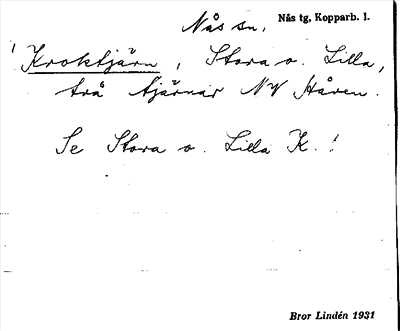 Nås sn. Nås tg, Kopparb. l.
Kroktjärn, Stora o. Lilla,
två tjärnar NV Håren.
Se Stora o. Lilla K.!
Bror Lindén 1931